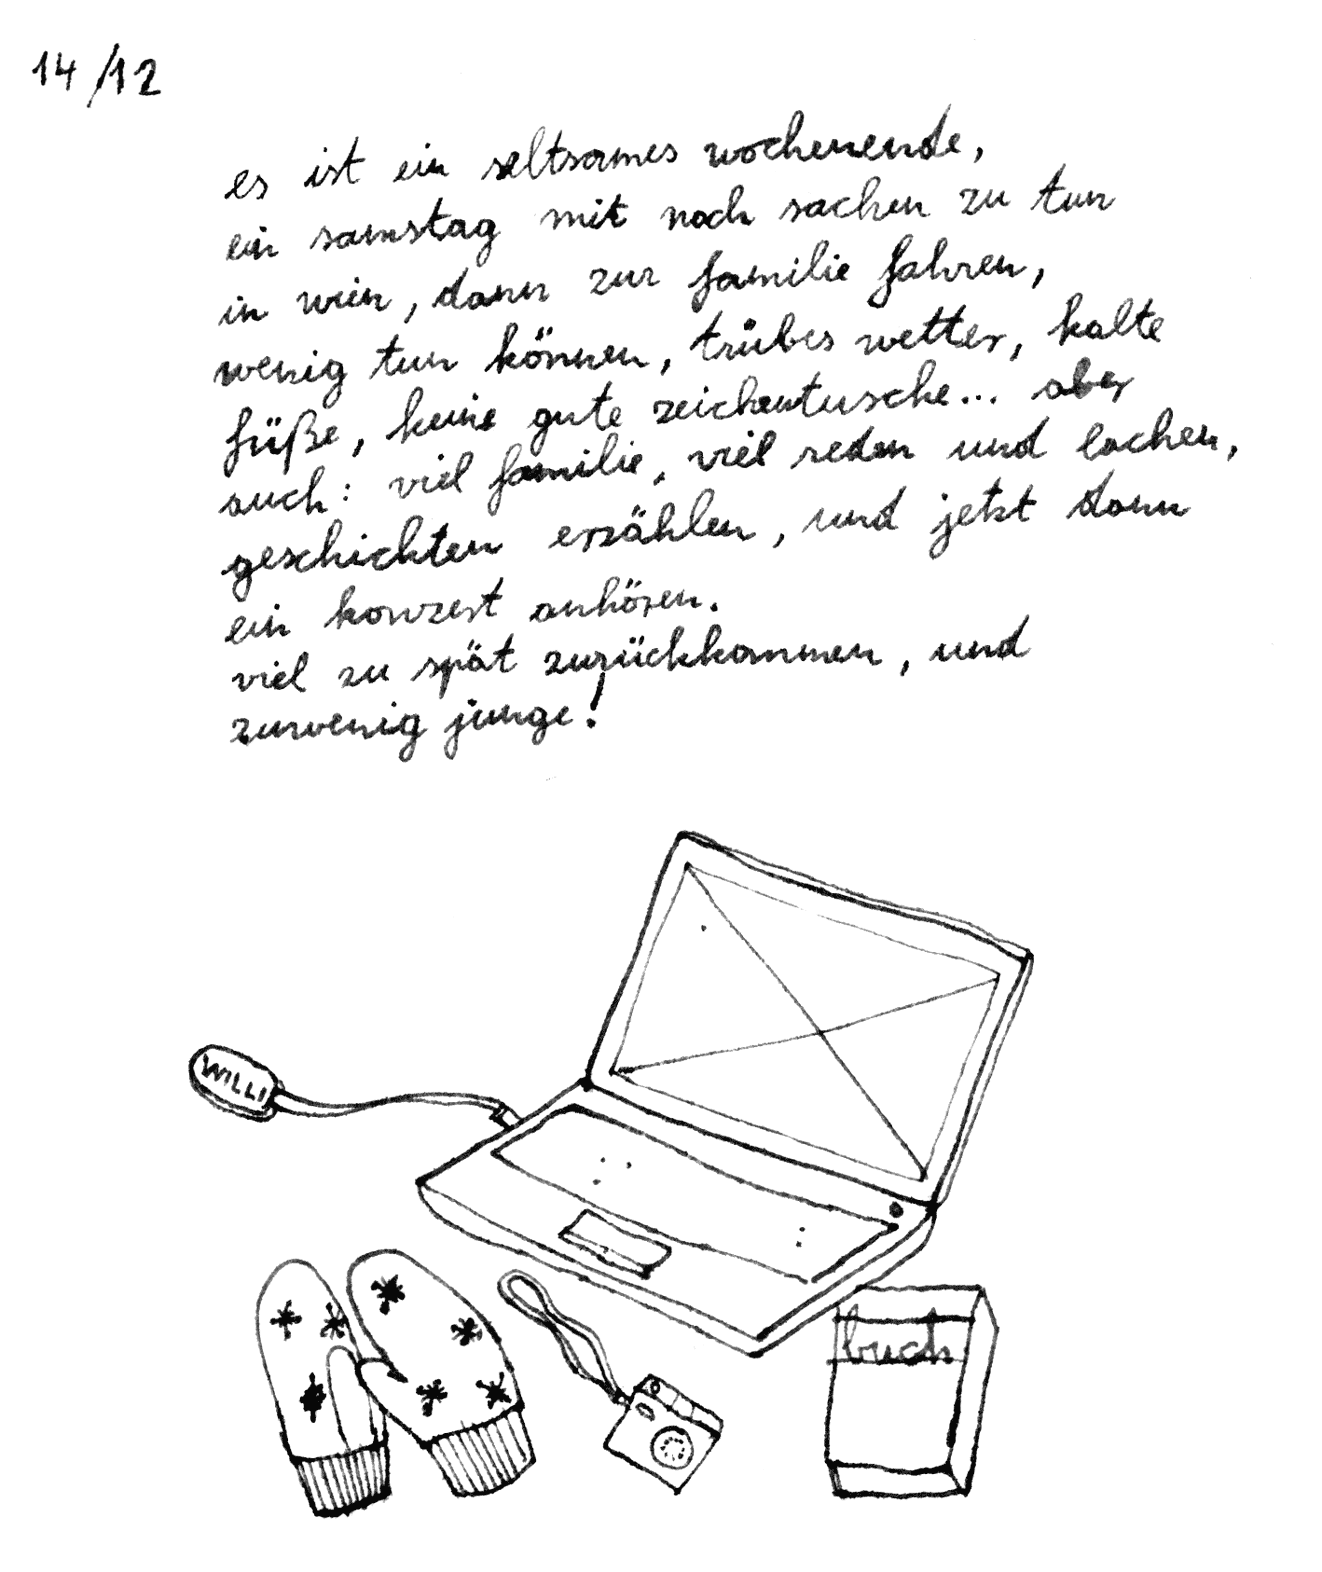 14/12
es ist ein seltsames wochenende,
ein samstag mit noch sachen zu tun
in wien, dann zur familie fahren,
wenig tun können, trübes wetter, kalte
füße, keine gute zeichentusche... aber
auch: viel familie, viel reden und lachen,
geschichten erzählen, und jetzt dann
ein konzert anhören.
viel zu spät zurückkommen, und
zuwenig junge!
WILLI
buch